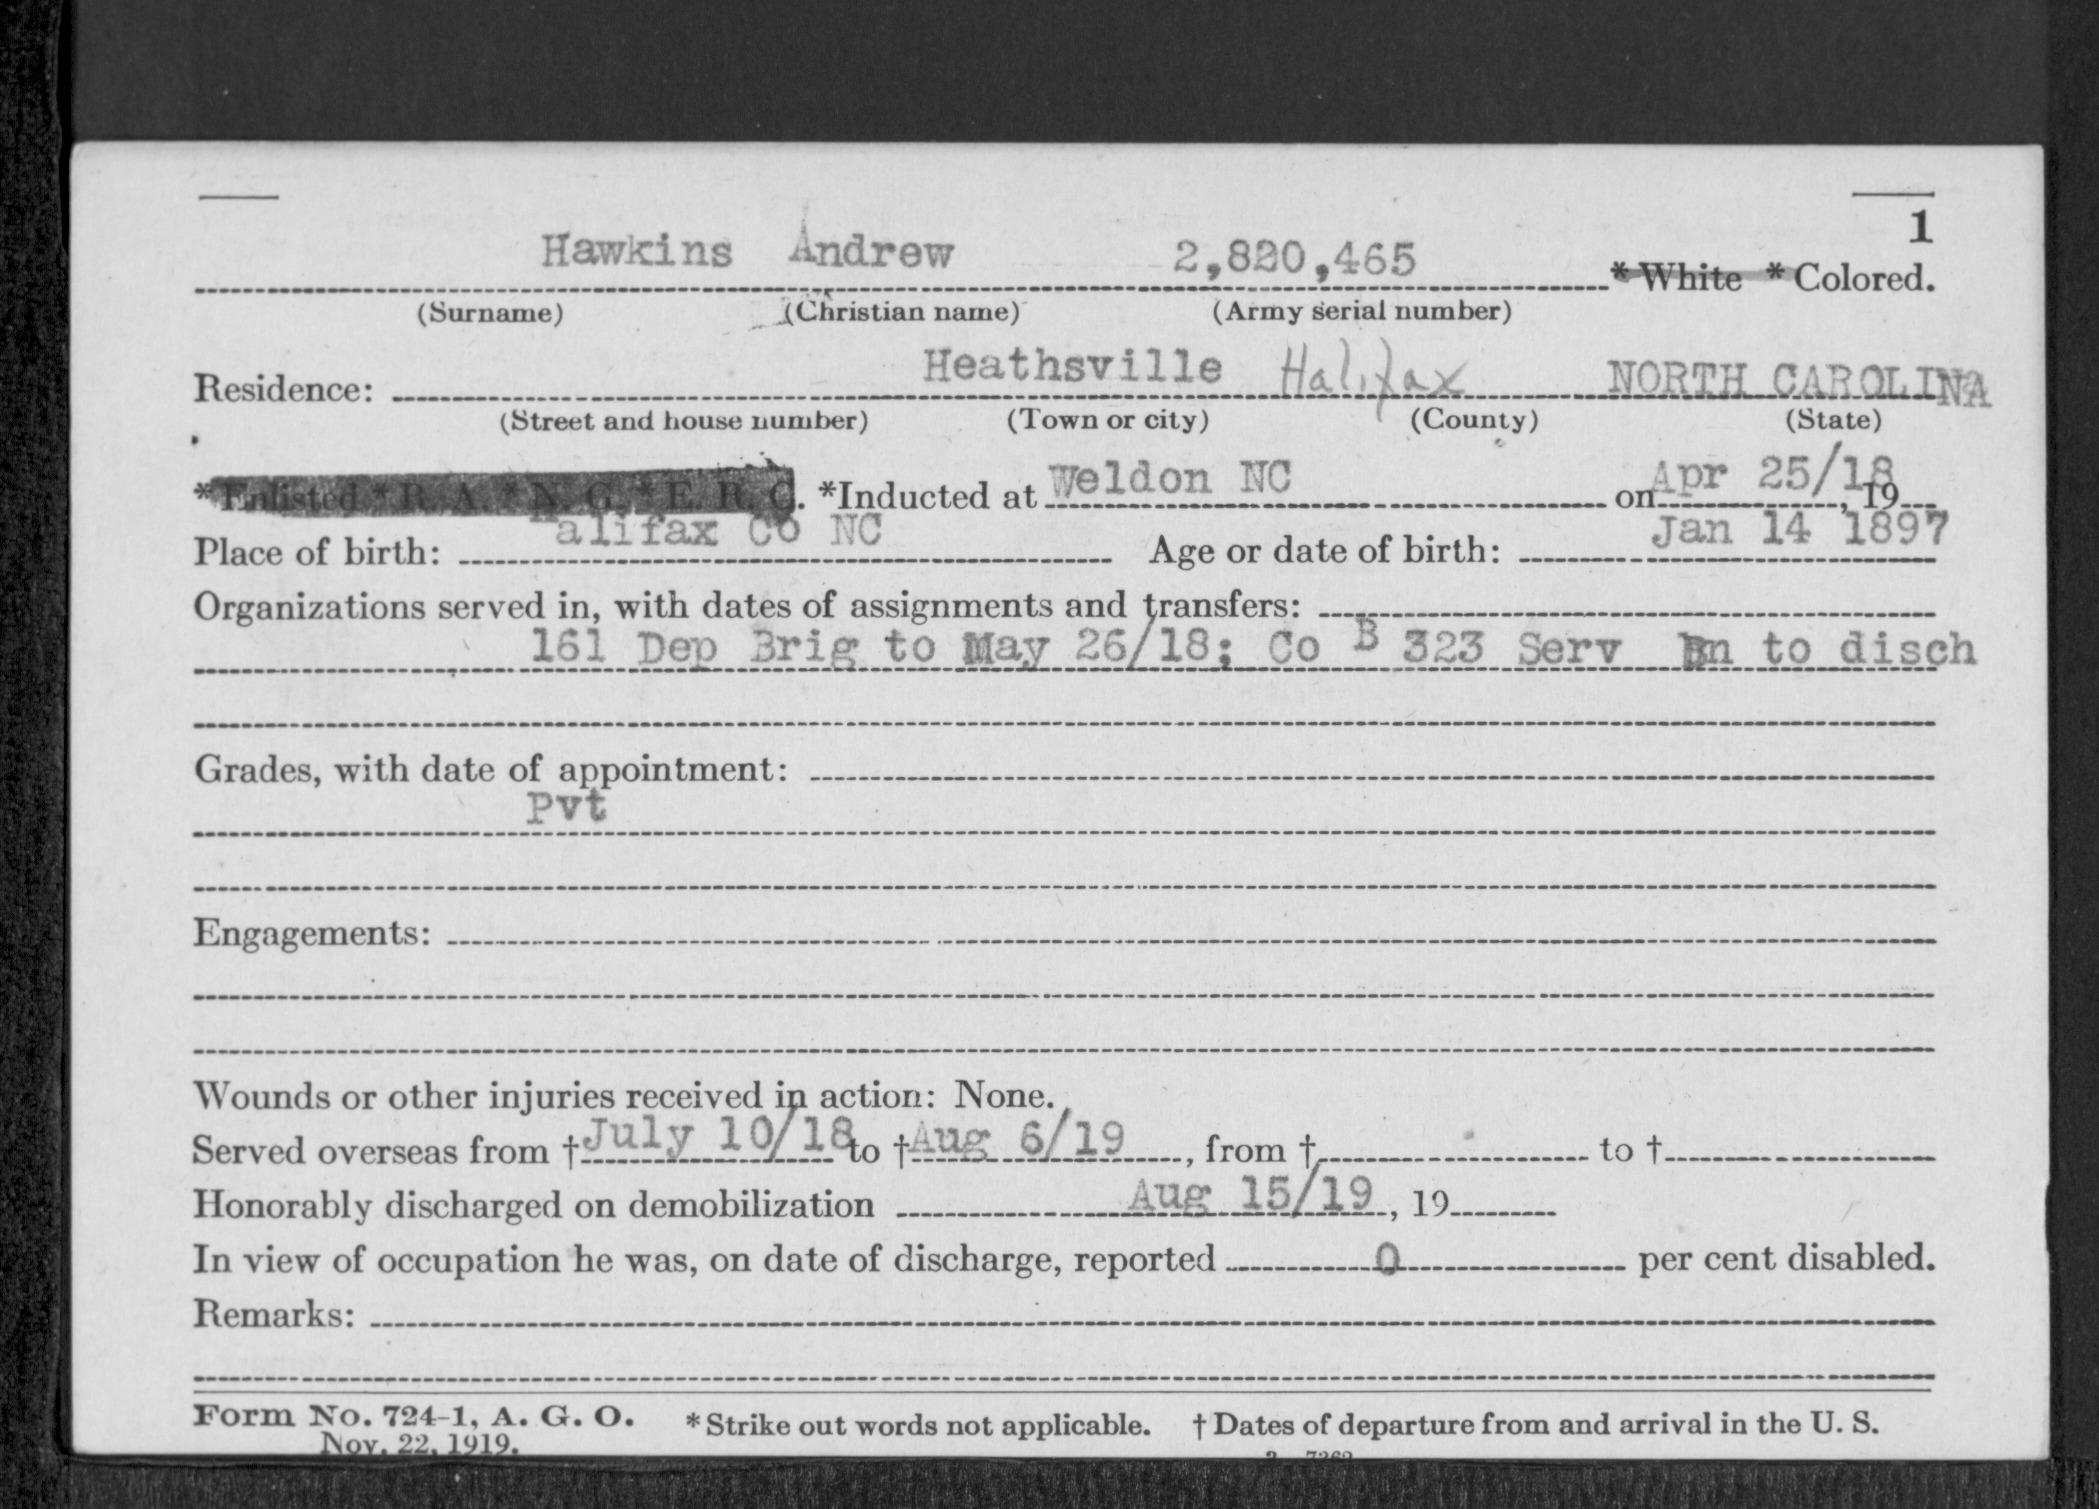 1
Hawkins Andrew 2,820,465 *White *Colored.
(Surname) (Christian name) (Army serial number)
Residence: Heathsville Halifax NORTH CAROLINA
(Street and house number) (Town or city) (County) (State)
*Enlisted *R. A. *N. G. *E. R. C. *Inducted at Weldon NC on Apr 25/18, 19
Place of birth: alifax Co NC Age or date of birth: Jan 14 1897
Organizations served in, with dates of assignments and transfers:
161 Dep Brig to May 26/18; Co B 323 Serv Bn to disch
Grades, with date of appointment:
Pvt
Engagements:
Wounds or other injuries received in action: None.
Served overseas from †July 10/18 to †Aug 6/19, from † to †
Honorably discharged on demobilization Aug 15/19, 19
In view of occupation he was, on date of discharge, reported 0 per cent disabled.
Remarks:
Form No. 724-1, A. G. O. *Strike out words not applicable. †Dates of departure from and arrival in the U. S.
Nov. 22, 1919.